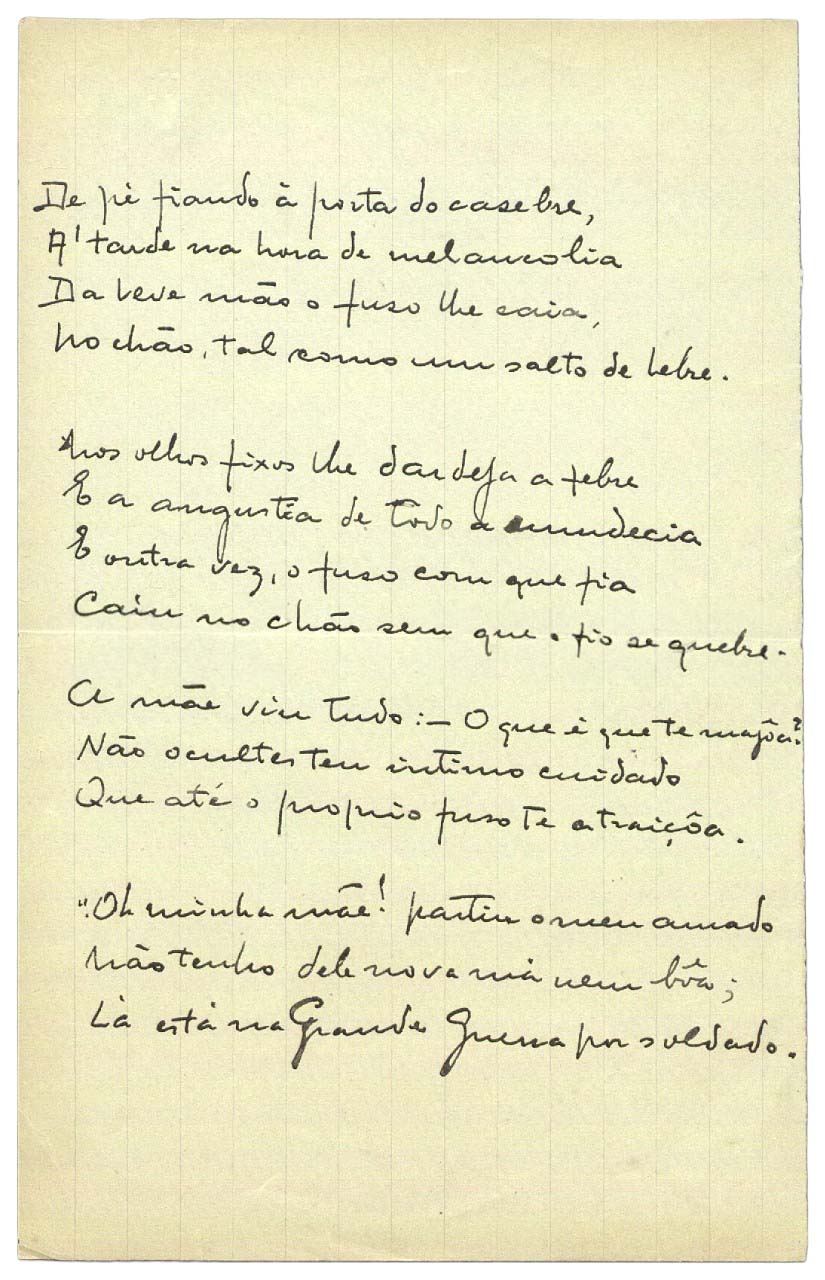 De pé fiando à porta do casebre,
A' tarde na hora de melancolia
Da leve mão o fuso lhe caia,
No chão, tal como um salto de lebre.
Nos olhos fixos lhe dardeja a febre
E a angustia de todo a emudecia
E outra vez, o fuso com que fia
Caiu no chão sem que o fio se quebre.
A mãe viu tudo:— O que é que te magôa?
Não ocultes teu intimo cuidado
Que até o proprio fuso te atraiçôa.
"Oh minha mãe! partiu o meu amado
Não tenho dele nova má nem bôa;
Lá está na Grande Guerra por soldado.